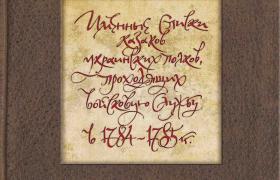 Именные списки
казаков
украинских полков,
проходящих
войсковую службу
в 1784-1785 г.